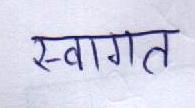 स्वागत